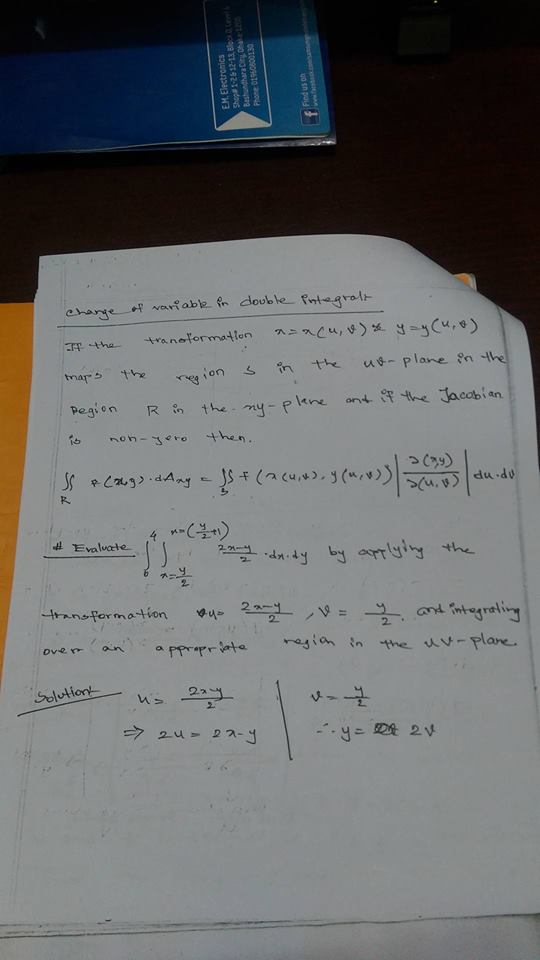 E.M. Electronics
Shop# 1-2 & 12-13, Block D, Level 6
Bashundhara City, Dhaka-1205
Phone: 01960800130
Find us on
Change of variable in double integrals
If the transformation x = x(u, v) & y = y(u, v)
maps the region S in the uv-plane in the
Region R in the xy-plane and if the Jacobian
is non-zero then.
∬_R f(x,y)·dA_xy = ∬_S f(x(u,v), y(u,v)) |∂(x,y)/∂(u,v)| du·dv
# Evaluate ∫_0^4 ∫_{x=y/2}^{x=(y/2+1)} (2x-y)/2 · dx·dy by applying the
transformation u = (2x-y)/2, v = y/2. and integrating
over an appropriate region in the uv-plane.
Solution: u = (2x-y)/2 | v = y/2
⇒ 2u = 2x-y | ∴ y = 2v